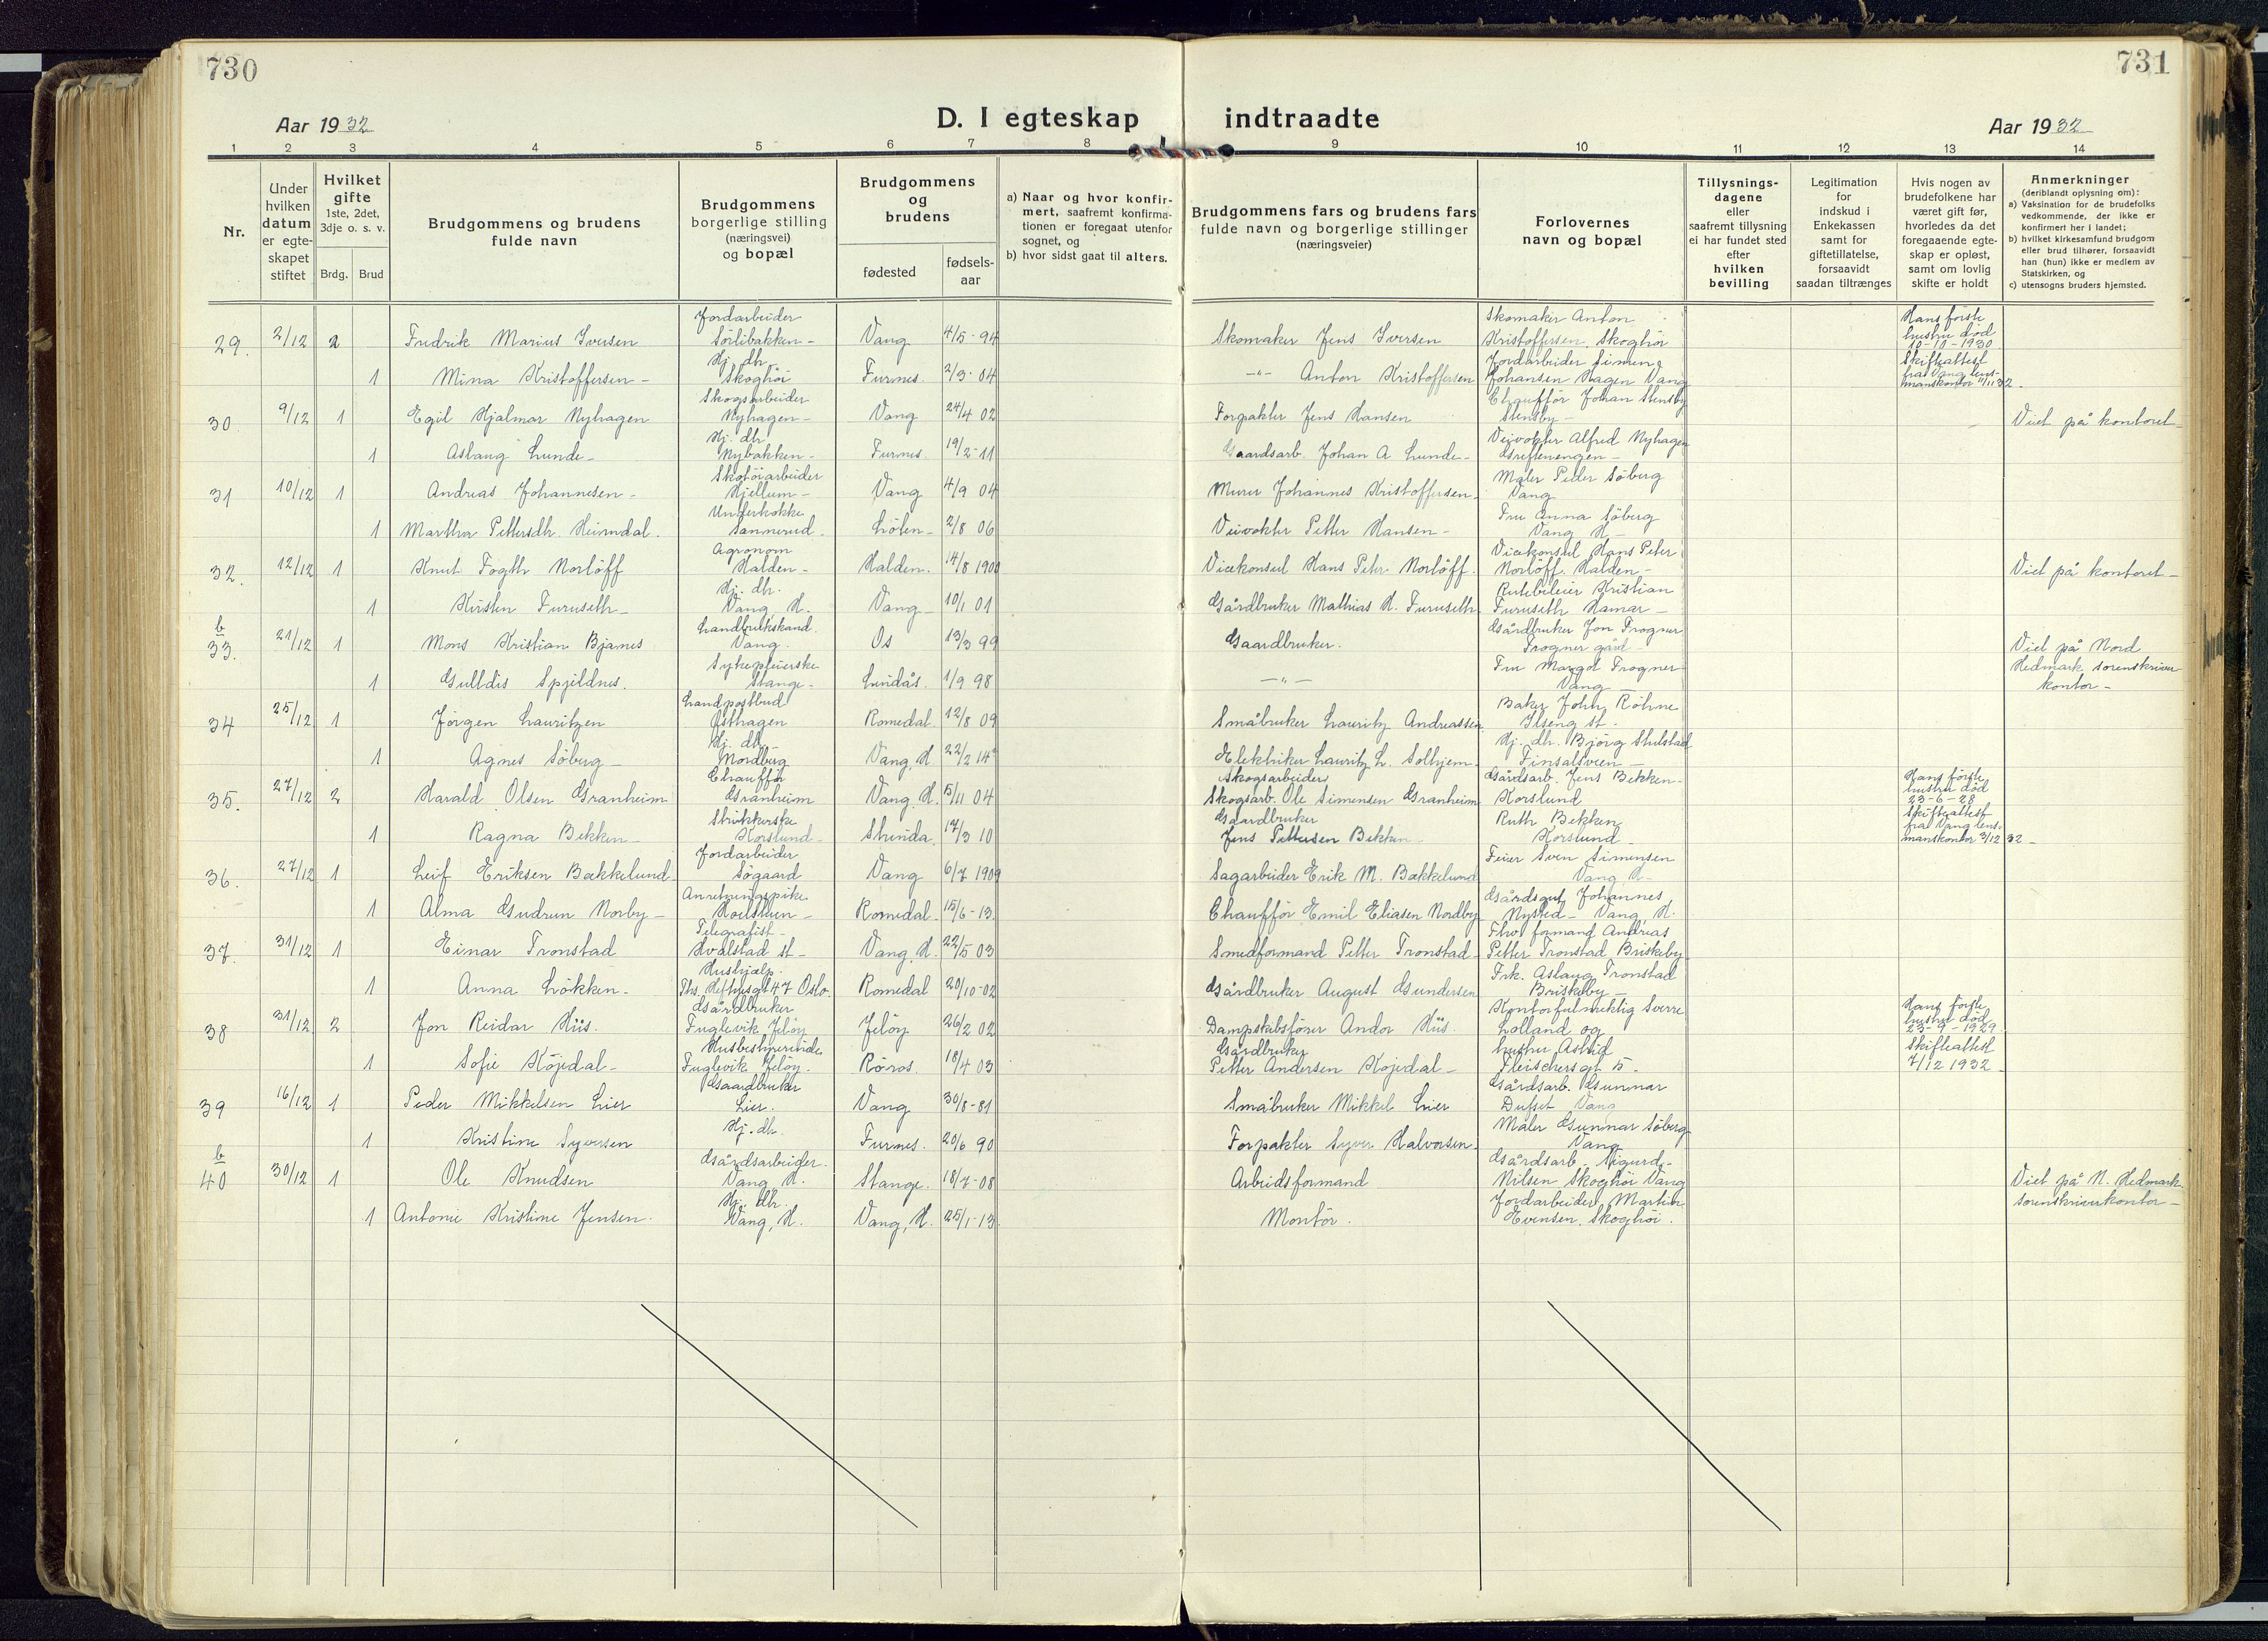 730
731
Aar 1932
D. I egteskap indtraadte
Aar 1932
1 2 3 4 5 6 7 8 9 10 11 12 13 14
Nr.
Under hvilken datum er egteskapet stiftet
Hvilket gifte 1ste, 2det, 3dje o. s. v.
Brdg. Brud
Brudgommens og brudens fulde navn
Brudgommens borgerlige stilling (næringsvei) og bopæl
Brudgommens og brudens
fødested
fødselsaar
a) Naar og hvor konfirmert, saafremt konfirmationen er foregaat utenfor sognet, og
b) hvor sidst gaat til alters.
Brudgommens fars og brudens fars fulde navn og borgerlige stillinger (næringsveier)
Forlovernes navn og bopæl
Tillysningsdagene eller saafremt tillysning ei har fundet sted efter hvilken bevilling
Legitimation for indskud i Enkekassen samt for giftetillatelse, forsaavidt saadan tiltrænges
Hvis nogen av brudefolkene har været gift før, hvorledes da det foregaaende egteskap er opløst, samt om lovlig skifte er holdt
Anmerkninger (deriblandt oplysning om):
a) Vaksination for de brudefolks vedkommende, der ikke er konfirmert her i landet;
b) hvilket kirkesamfund brudgom eller brud tilhører, forsaavidt han (hun) ikke er medlem av Statskirken, og
c) utensogns bruders hjemsted.
29. 2/12 2 Fredrik Marius Iversen Jordarbeider Sörlibakken - Vang 4/5-94 Skomaker Jens Iversen Skomaker Anton Kristoffersen, Skoghöi Hans förste hustru död 10-10-1930 Skifteattest fra Vang lensmanskontor 11/11 32.
1 Mina Kristoffersen - Hj. dtr. Skoghöi Furnes. 2/3-04 -"- Anton Kristoffersen Jordarbeider Simen Johansen Hagen Vang
30. 9/12 1 Egil Hjalmar Nyhagen Skogsarbeider Nyhagen - Vang 24/4 02 Forpakter Jens Hansen Chauffør Johan Stensby Stensby - Viet på kontoret -
1 Aslaug Lunde - Hj. dtr Nybakken - Furnes. 19/2-11 Gaardsarb. Johan A Lunde - Veivokter Alfred Nyhagen
31 10/12 1 Andreas Johannesen - Skotöiarbeider Hjellum - Vang 4/9 04 Murer Johannes Kristoffersen. Maler Peder Söberg Vang
1 Martha Pettersdtr. Heimdal. Underkokke Sannerud. Löten - 2/8 06 Veivokter Petter Hansen - Fru Anna Söberg Vang H -
32. 12/12 1 Knut Fogth Norlöff Agronom Halden - Halden. 14/8 1900 Vicekonsul Hans Peter Norlöff. Vicekonsul Hans Peter Norlöff. Halden - Viet på kontoret -
1 Kirsten Furuseth - Hj. dtr. Vang, H. Vang - 10/1 01 Gårdbruker Mathias H. Furuseth Rutebileier Kristian Furuseth Hamar -
b 33. 21/12 1 Mons Kristian Bjanes Landbrukskand. Vang. Os 13/3 99 Gaardbruker. Gårdbruker Jon Frogner Frogner gård - Viet på Nord Hedmark sorenskriver kontor -
1 Gulldis Spjeldnes. Sykepleierske Stange - Lindås. 1/9 98 -"- Fru Margot Frogner Vang -
34 25/12 1 Jörgen Lauritzen Landpostbud Östhagen Romedal. 12/8 09 Småbruker Lauritz Andreassen Baker John Röhne Ilseng st.
1 Agnes Söberg - Hj. dtr - Nordberg Vang, H 22/2 14 Elektriker Lauritz L. Solhjem Hj. dtr. Björg Stulstad Finsalsveien -
35. 27/12 2 Harald Olsen Granheim Chauffør Granheim Vang, H. 5/11 04 Skogsarbeider Skogsarb. Ole Simensen Granheim Gårdsarb. Jens Bekken - Korslund Hans förste hustru död 23-6-28 Skifteattest fra Vang lensmanskontor 3/12 32 -
1 Ragna Bekken - Strikkerske Korslund - Strinda. 17/3 10 Gaardbruker Jens Pettersen Bekken - Ruth Bekken Korslund -
36. 27/12 1 Leif Eriksen Bækkelund - Jordarbeider Sögaard Vang 6/7 1909 Sagarbeider Erik M. Bækkelund Feier Sven Simensen Vang H -
1 Alma Gudrun Norby - Anretningspike Romedal. 15/6-13. Chaufför Emil Eliasen Nordby Gårdsgut Johannes Nysted - Vang, H.
37. 31/12 1 Einar Tronstad Telegrafist - Hvalstad st - Vang, H. 22/5 03 Smedformand Petter Tronstad - formand Andreas Petter Tronstad Briskeby
1 Anna Lökken - Hushjælp. Ths. Heftyesgt 47 Oslo. Romedal 20/10-02 Gårdbruker August Gundersen Frk. Aslaug Tronstad Briskeby -
38 31/12 2 Jon Reidar Hiis. Gårdbruker Fuglevik, Jelöy Jelöy 26/2 02 Dampskibsförer Andor Hiis. Kontorfulmektig Sverre Lolland og Hans förste hustru död 23-9-1929 Skifteattest 7/12 1932 -
1 Sofie Köjedal - Husbestyrerinde Fuglevik Jelöy. Röros. 18/4 03 Gårdbruker Petter Andersen Köjedal - hustru Astrid Fleischersgt 5 -
39 16/12 1 Peder Mikkelsen Lier Gaardbruker Lier. Vang 30/8-81 Småbruker Mikkel Lier Gårdsarb. Gunnar Dufset Vang
1 Kristine Syversen Hj. dtr. Furnes. 20/6 90 Forpakter Syver Halvorsen. Maler Gunnar Söberg - Vang
b 40 30/12 1 Ole Knudsen Gårdsarbeider. Vang, H. Stange. 18/7-08 Arbeidsformand Gårdsarb. Sigurd Nilsen Skoghöi Vang Viet på N. Hedmark sorenskriverkontor -
1 Antonie Kristine Jensen. Hj. dtr. Vang, H. Vang, H. 25/1-13. Montör. Jordarbeider Martin Evensen. Skoghöi.